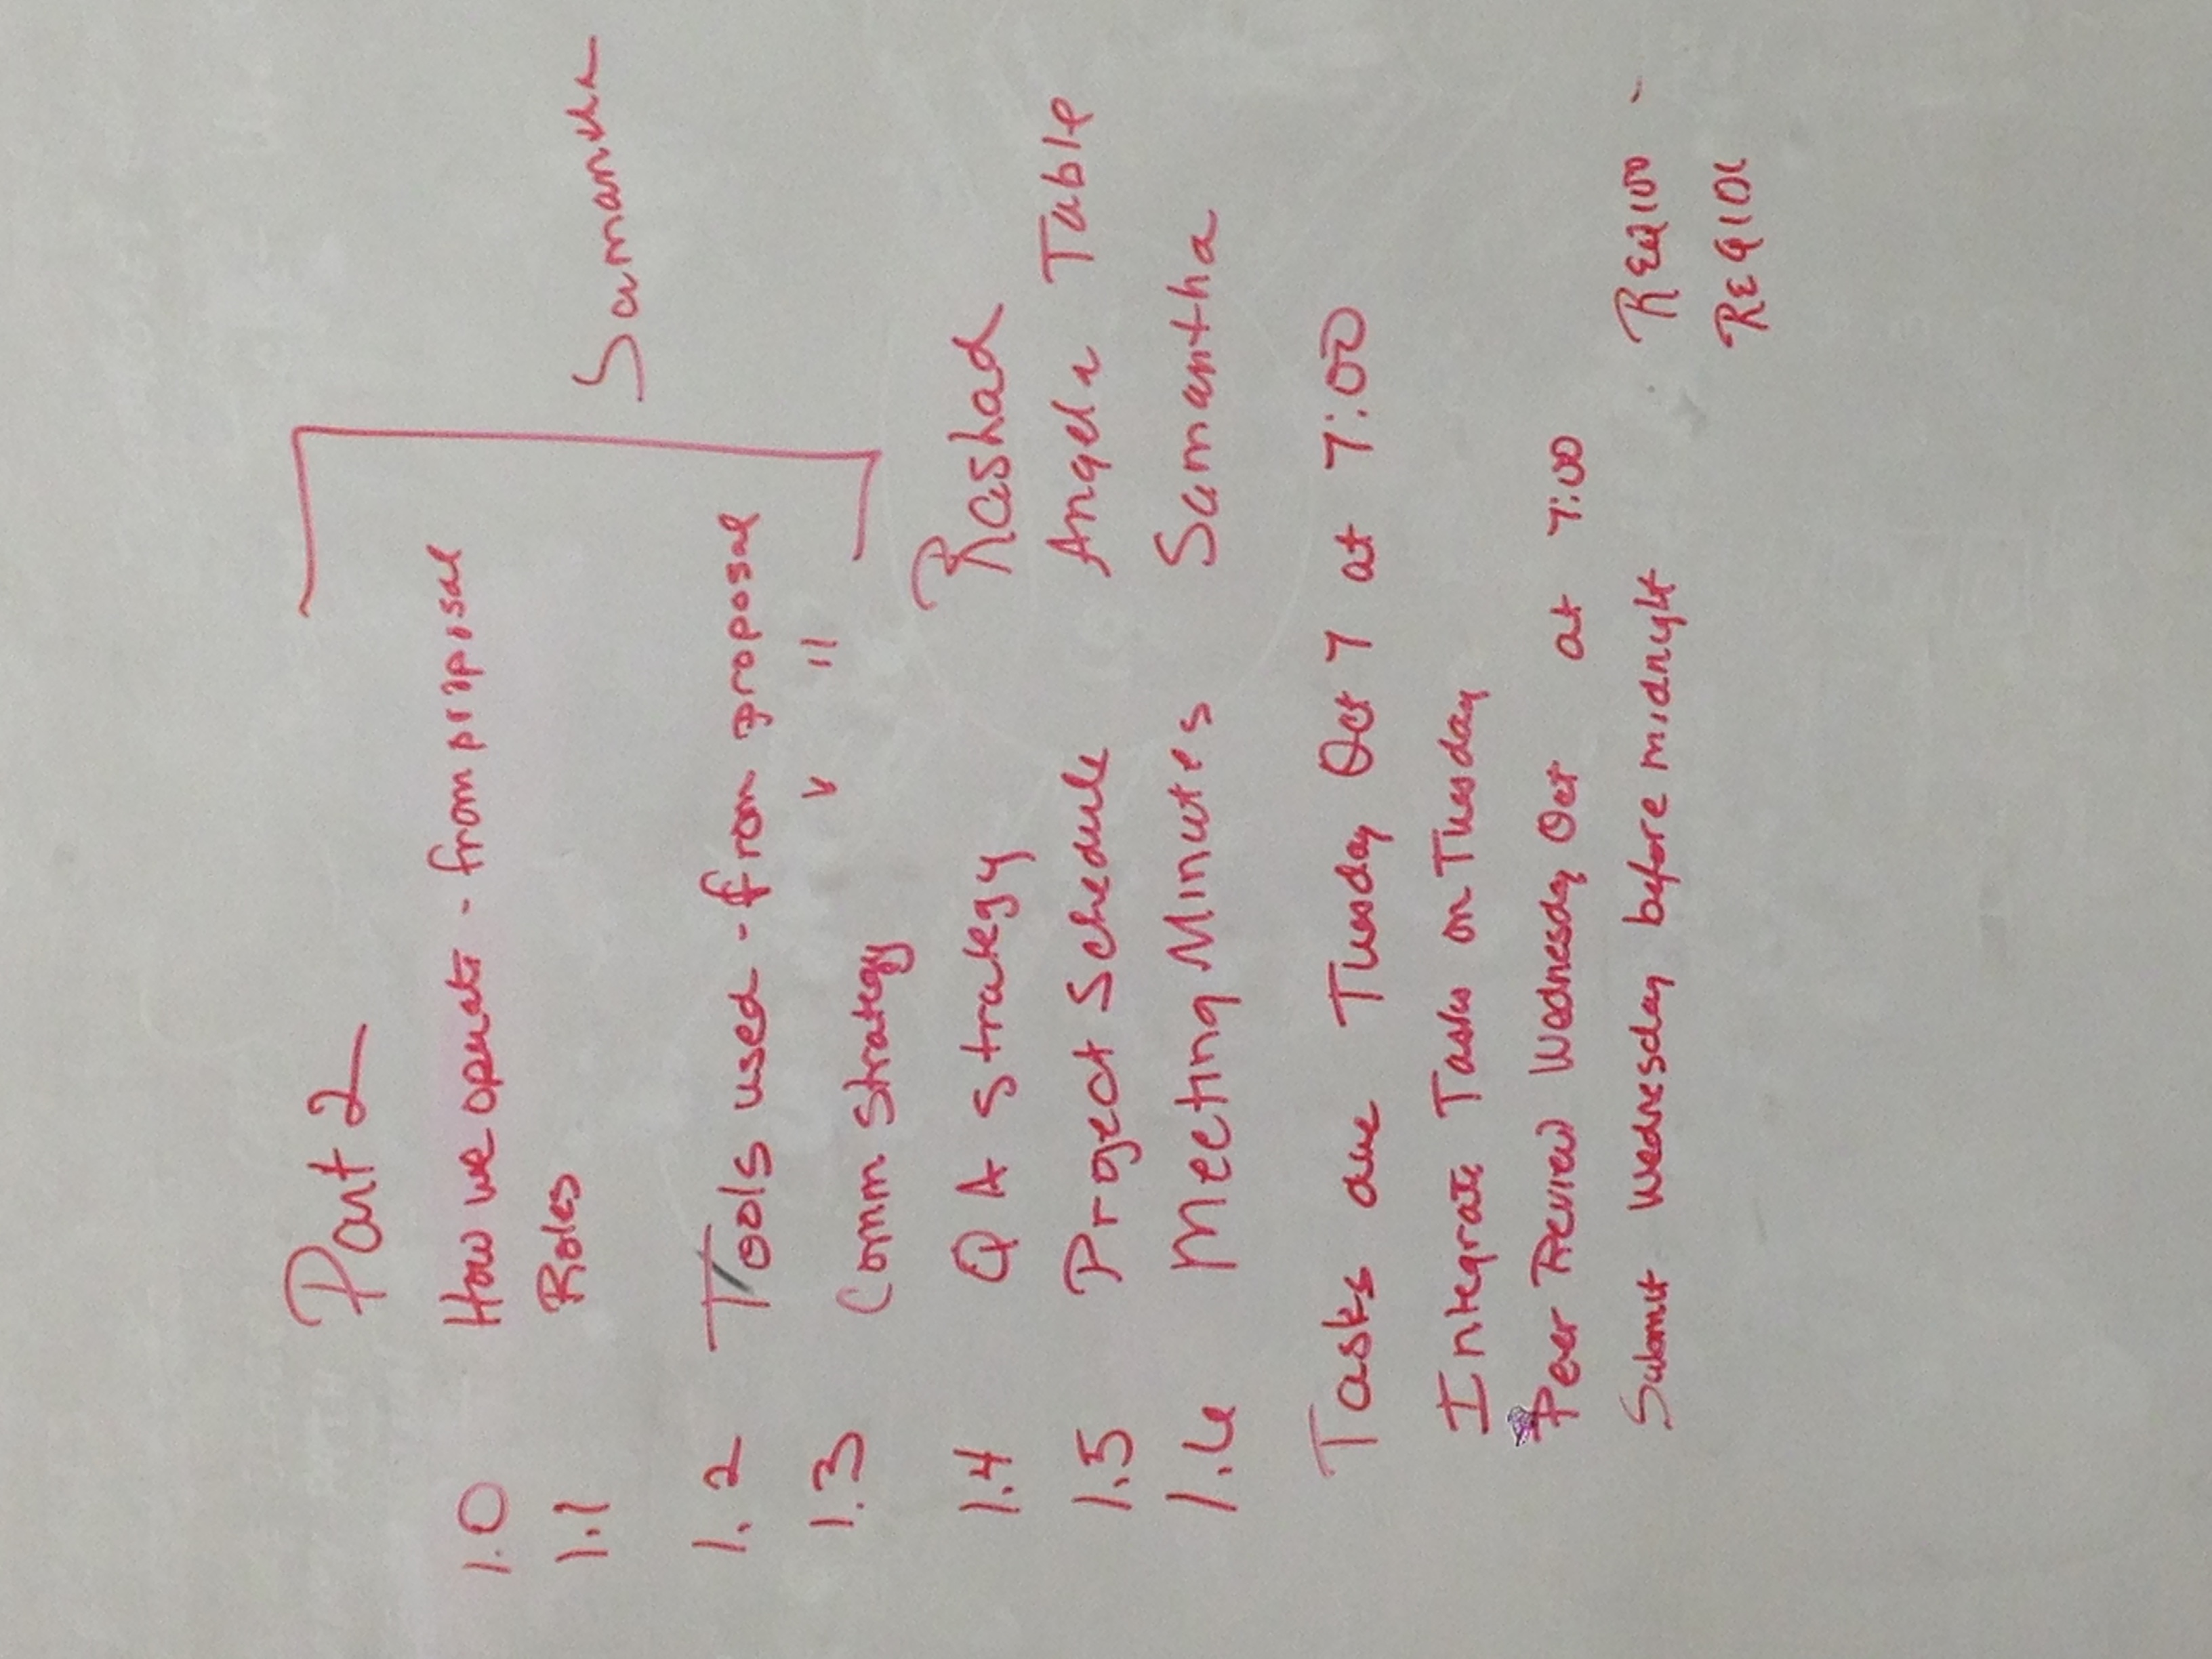 Part 2
1.0 How we operate - from proposal
1.1 Roles
Samantha
1.2 Tools used - from proposal
1.3 Comm Strategy " "
1.4 QA strategy Rashad
1.5 Project Schedule Angela Table
1.6 Meeting Minutes Samantha
Tasks due Tuesday Oct 7 at 7:00
Integrate Tasks on Tuesday
Peer Review Wednesday Oct at 7:00
Submit Wednesday before midnight
REQ100 -
REQ101